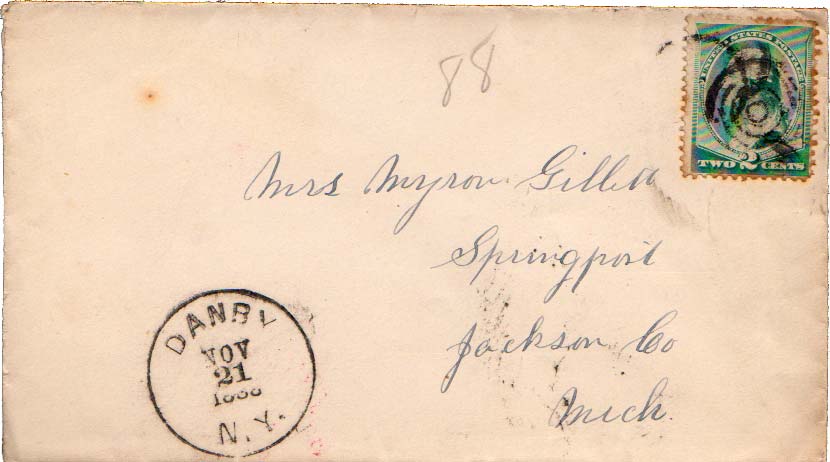 88
UNITED STATES POSTAGE
TWO 2 CENTS
Mrs Myron Gillett
Springport
Jackson Co
Mich.
DANBY
NOV
21
1888
N.Y.